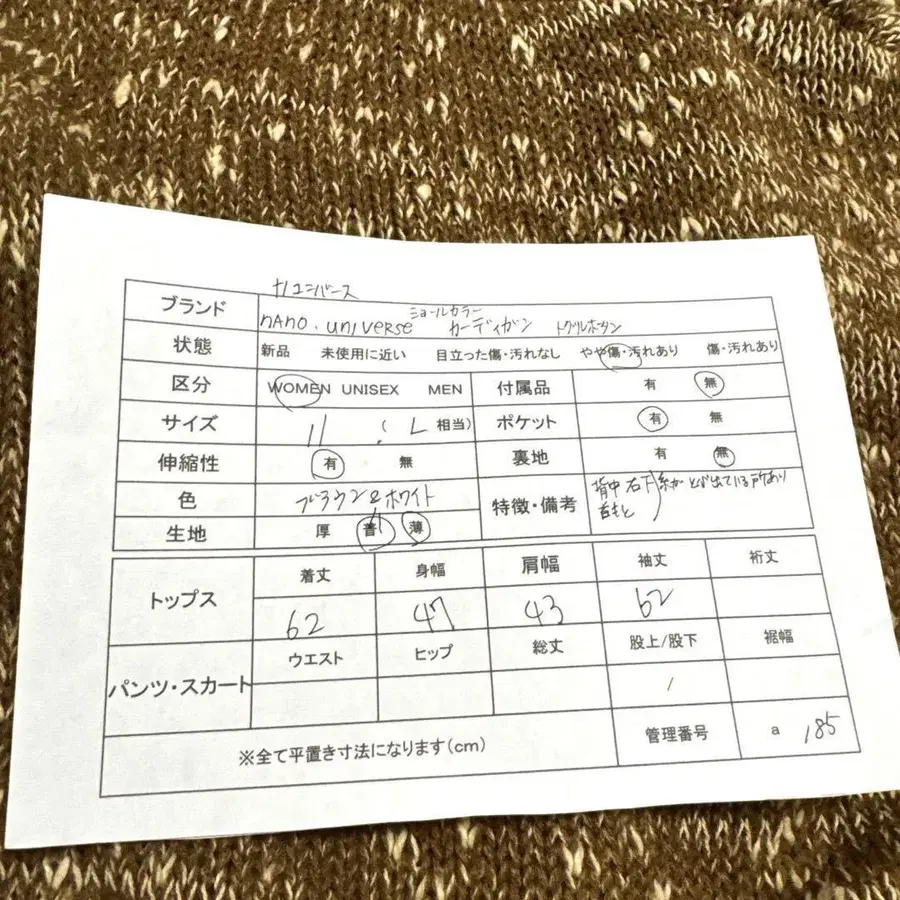 ナノユニバース
ブランド nano・universe ショールカラー カーディガン トグルボタン
状態 新品 未使用に近い 目立った傷・汚れなし やや傷・汚れあり 傷・汚れあり
区分 WOMEN UNISEX MEN 付属品 有 無
サイズ 11 (L 相当) ポケット 有 無
伸縮性 有 無 裏地 有 無
色 ブラウン&ホワイト 特徴・備考 背中 右下 糸がとび出ている所あり
首もと
生地 厚 普 薄
トップス 着丈 身幅 肩幅 袖丈 裄丈
62 47 43 62
パンツ・スカート ウエスト ヒップ 総丈 股上/股下 裾幅
/
※全て平置き寸法になります(cm) 管理番号 a 185